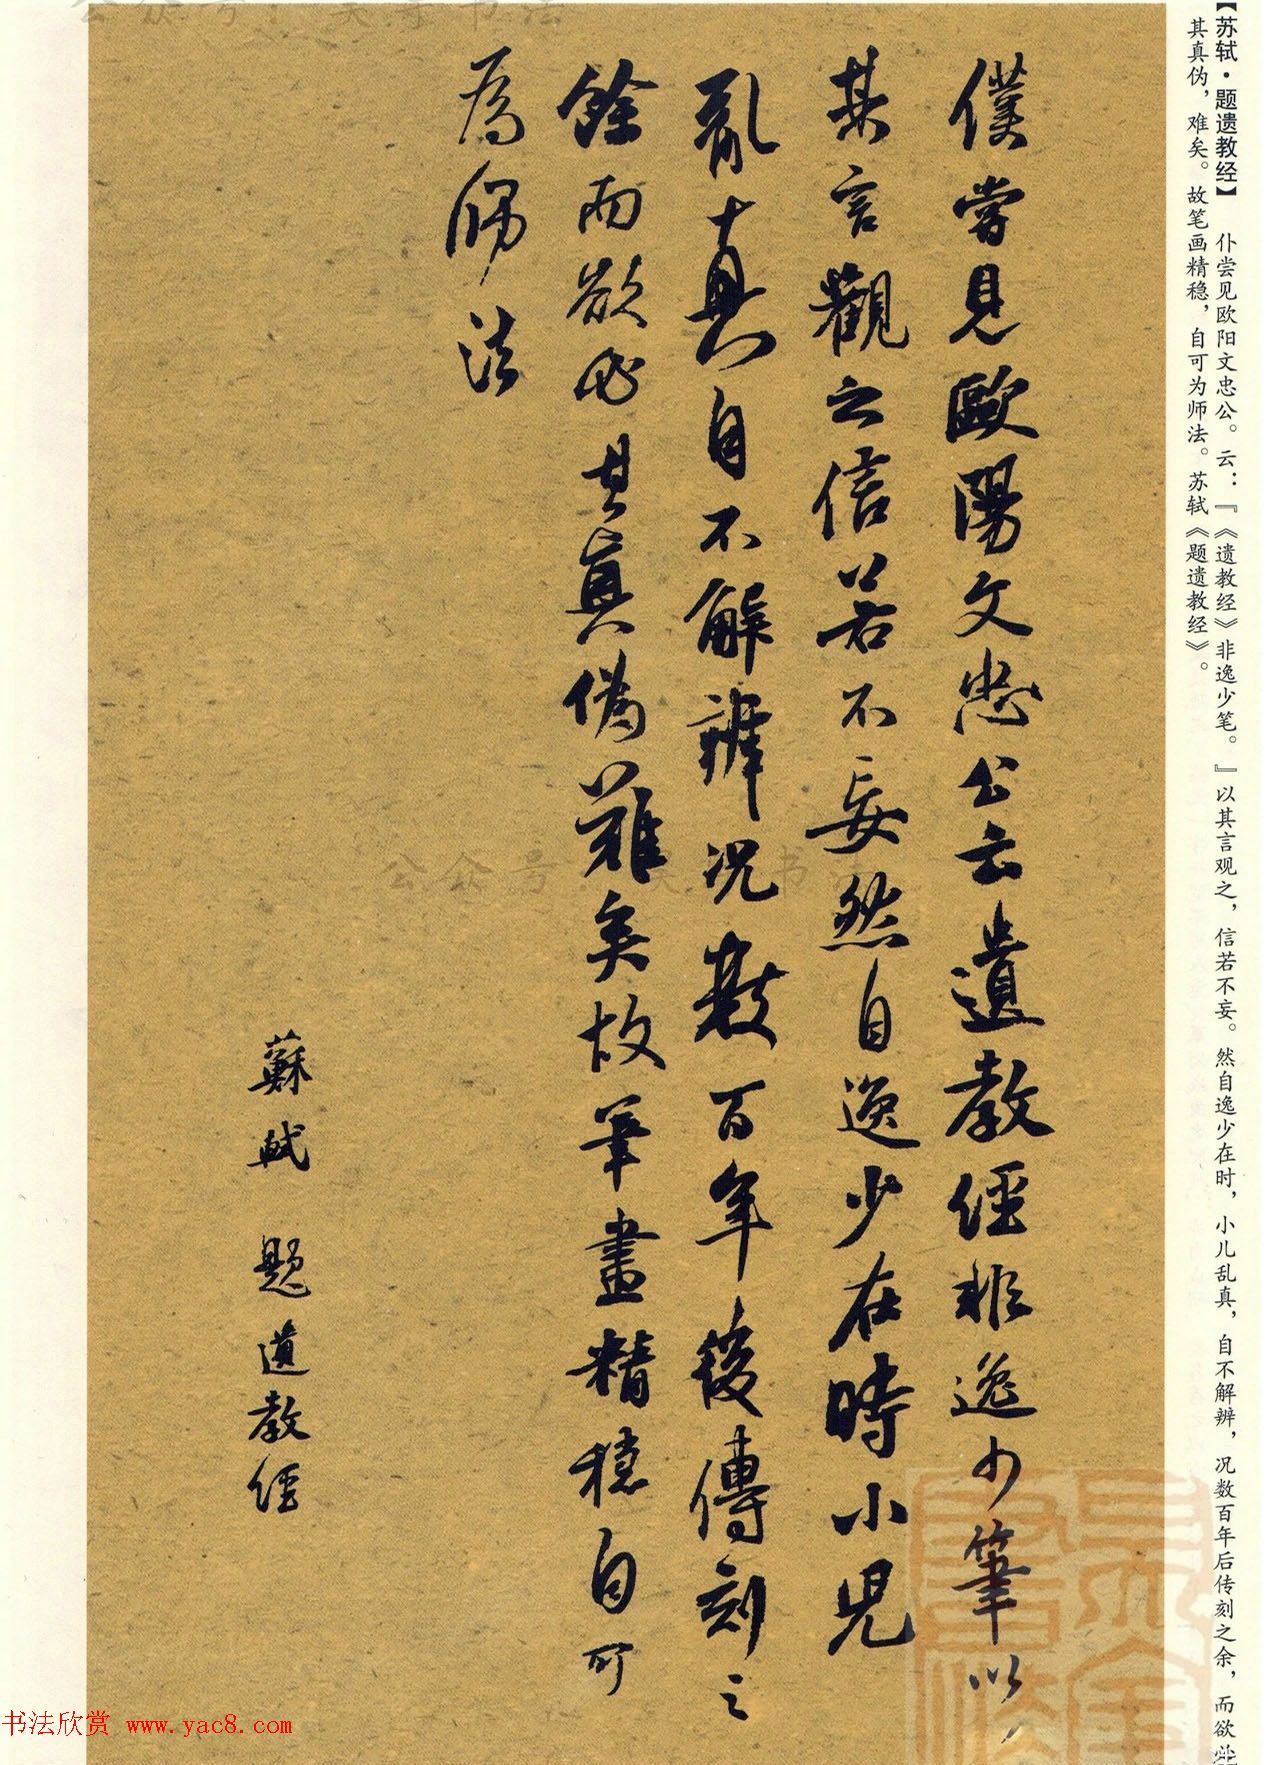 【苏轼·题遗教经】 仆尝见欧阳文忠公。云：『《遗教经》非逸少笔。』以其言观之，信若不妄。然自逸少在时，小儿乱真，自不解辨，况数百年后传刻之余，而欲
其真伪，难矣。故笔画精稳，自可为师法。苏轼《题遗教经》。
僕嘗見歐陽文忠公云遺教經非逸少筆以
其言觀之信若不妄然自逸少在時小兒
亂真自不解辨况數百年後傳刻之
餘而欲必其真偽難矣故筆畫精穩自可
為師法
蘇軾 題遺教經
书法欣赏 www.yac8.com